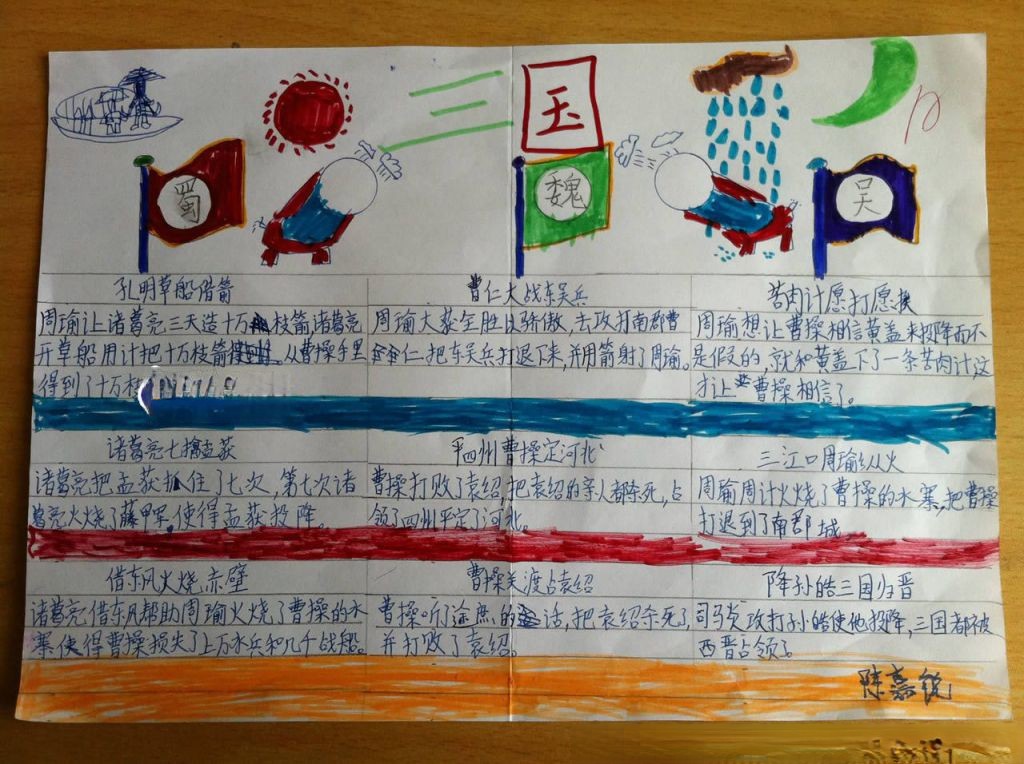 三国
蜀
魏
吴
孔明草船借箭
周瑜让诸葛亮三天造十万枝箭诸葛亮
开草船用计把十万枝箭 从曹操手里
得到了十万枝
曹仁大战东吴兵
周瑜大获全胜以骄傲,去攻打南郡曹
仁.把东吴兵打退下来,并用箭射了周瑜。
苦肉计愿打愿挨
周瑜想让曹操相信黄盖来投降而不
是假的,就和黄盖下了一条苦肉计这
才让曹操相信了。
诸葛亮七擒孟获
诸葛亮把孟获抓住了七次,第七次诸
葛亮火烧了藤甲军.使得孟获投降。
平四州曹操定河北
曹操打败了袁绍,把袁绍的亲人都杀死,占
领了四州平定了河北。
三江口周瑜纵火
周瑜用计火烧了曹操的水寨,把曹操
打退到了南郡城
借东风火烧赤壁
诸葛亮借东风帮助周瑜火烧了曹操的水
寨使得曹操损失了上万水兵和几千战船。
曹操关渡占袁绍
曹操听 的话,把袁绍杀死了
并打败了袁绍。
降孙皓三国归晋
司马炎攻打孙皓使他投降,三国都被
西晋占领了。
陈嘉锐